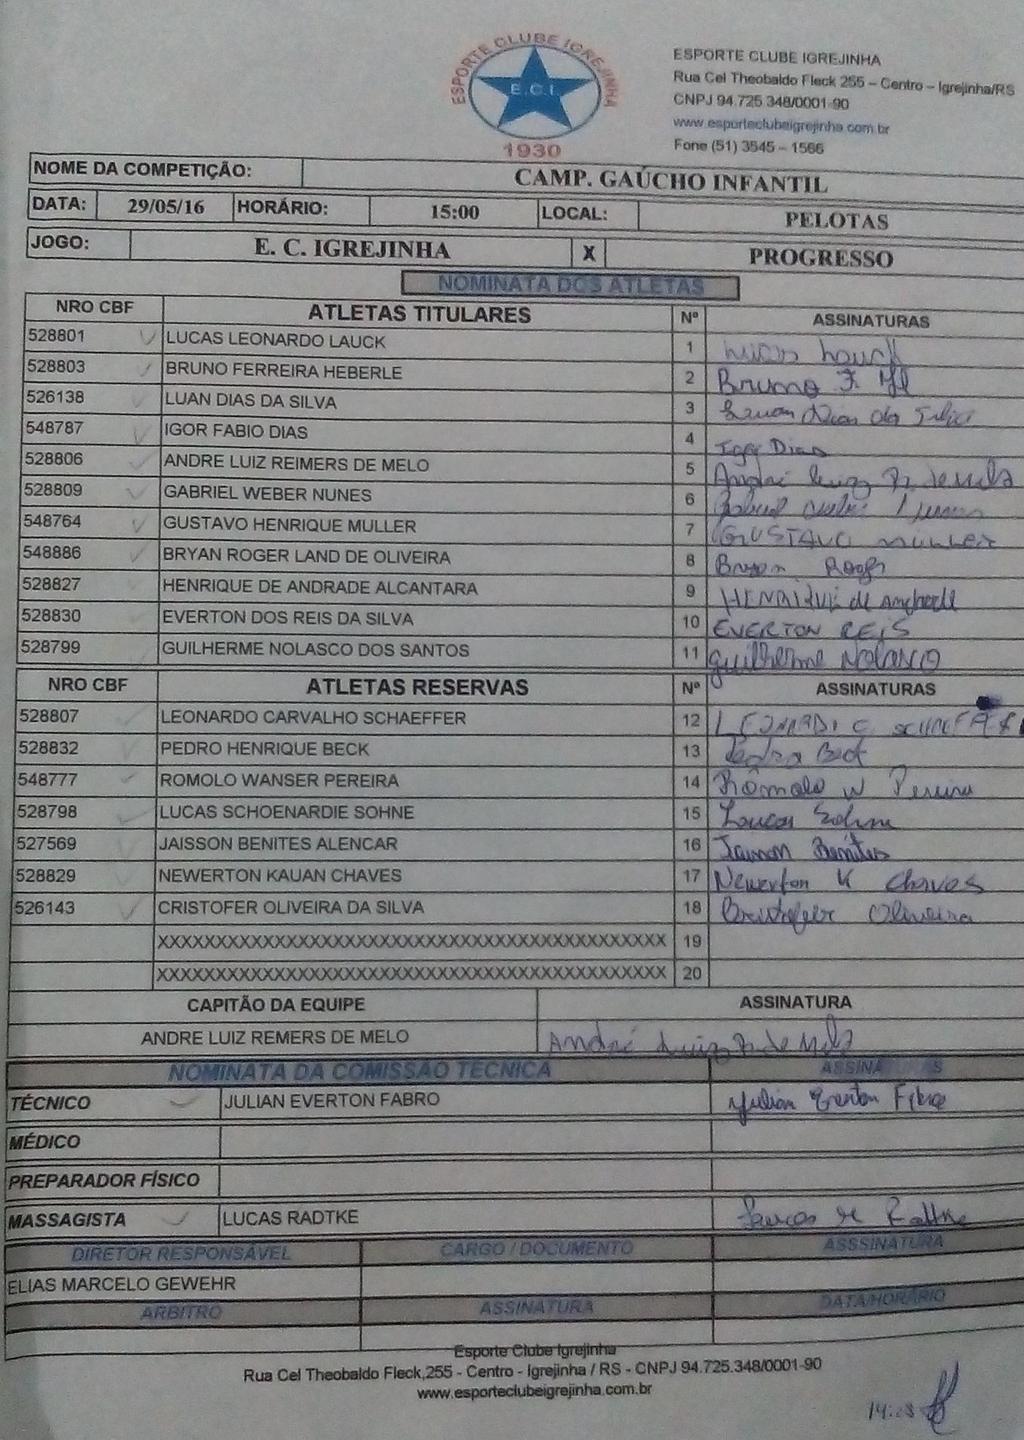 ESPORTE CLUBE IGREJINHA
E.C.I.
1930
ESPORTE CLUBE IGREJINHA
Rua Cel Theobaldo Fleck 255 – Centro – Igrejinha/RS
CNPJ 94.725.348/0001-90
www.esporteclubeigrejinha.com.br
Fone (51) 3545 – 1566
NOME DA COMPETIÇÃO: CAMP. GAÚCHO INFANTIL
DATA: 29/05/16 HORÁRIO: 15:00 LOCAL: PELOTAS
JOGO: E. C. IGREJINHA X PROGRESSO
NOMINATA DOS ATLETAS
NRO CBF ATLETAS TITULARES Nº ASSINATURAS
528801 LUCAS LEONARDO LAUCK 1 Lucas Lauck
528803 BRUNO FERREIRA HEBERLE 2 Bruno F.
526138 LUAN DIAS DA SILVA 3 Luan Dias da Silva
548787 IGOR FABIO DIAS 4 Igor Dias
528806 ANDRE LUIZ REIMERS DE MELO 5 André Luiz R. de Melo
528809 GABRIEL WEBER NUNES 6 Gabriel Weber Nunes
548764 GUSTAVO HENRIQUE MULLER 7 GUSTAVO MULLER
548886 BRYAN ROGER LAND DE OLIVEIRA 8 Bryan Roger
528827 HENRIQUE DE ANDRADE ALCANTARA 9 HENRIQUE de Andrade
528830 EVERTON DOS REIS DA SILVA 10 EVERTON REIS
528799 GUILHERME NOLASCO DOS SANTOS 11 Guilherme Nolasco
NRO CBF ATLETAS RESERVAS Nº ASSINATURAS
528807 LEONARDO CARVALHO SCHAEFFER 12 LEONARDO C
528832 PEDRO HENRIQUE BECK 13 Pedro Beck
548777 ROMOLO WANSER PEREIRA 14 Rômolo W Pereira
528798 LUCAS SCHOENARDIE SOHNE 15 Lucas Sohne
527569 JAISSON BENITES ALENCAR 16 Jaisson Benites
528829 NEWERTON KAUAN CHAVES 17 Newerton K Chaves
526143 CRISTOFER OLIVEIRA DA SILVA 18 Cristofer Oliveira
XXXXXXXXXXXXXXXXXXXXXXXXXXXXXXXXXXXXXXXXXXX 19
XXXXXXXXXXXXXXXXXXXXXXXXXXXXXXXXXXXXXXXXXXX 20
CAPITÃO DA EQUIPE ASSINATURA
ANDRE LUIZ REMERS DE MELO André Luiz R. de Melo
NOMINATA DA COMISSÃO TÉCNICA ASSINATURAS
TÉCNICO JULIAN EVERTON FABRO Julian Everton Fabro
MÉDICO
PREPARADOR FÍSICO
MASSAGISTA LUCAS RADTKE Lucas M Radtke
DIRETOR RESPONSÁVEL CARGO / DOCUMENTO ASSSINATURA
ELIAS MARCELO GEWEHR
ARBITRO ASSINATURA DATA/HORÁRIO
Esporte Clube Igrejinha
Rua Cel Theobaldo Fleck,255 - Centro - Igrejinha / RS - CNPJ 94.725.348/0001-90
www.esporteclubeigrejinha.com.br
14:28